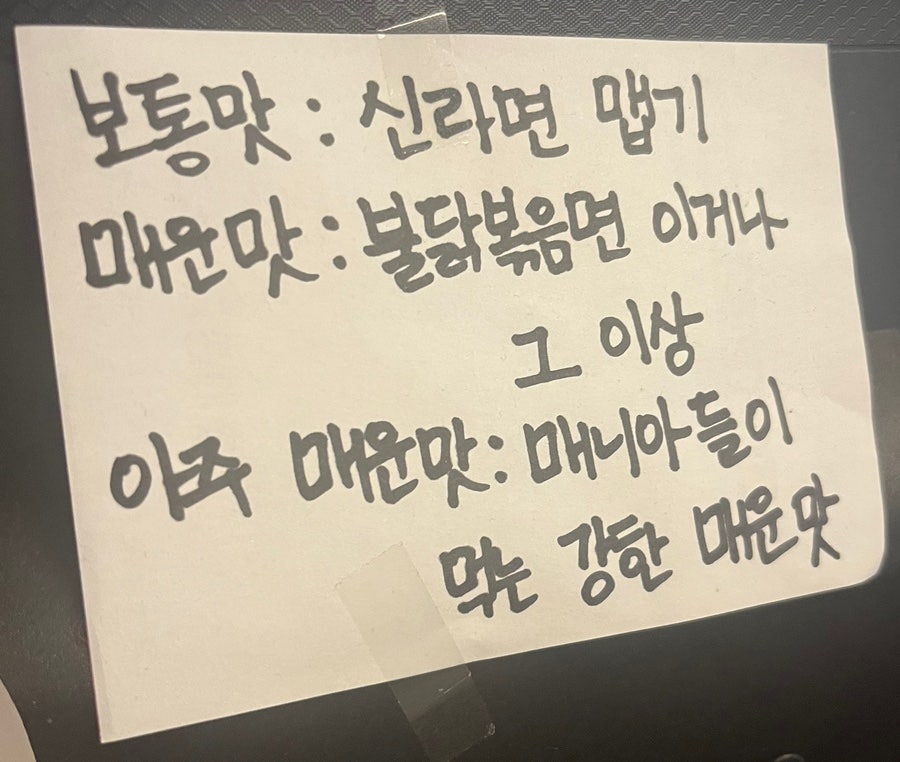 보통맛 : 신라면 맵기
매운맛 : 불닭볶음면 이거나
그 이상
아주 매운맛 : 매니아들이
먹는 강한 매운맛